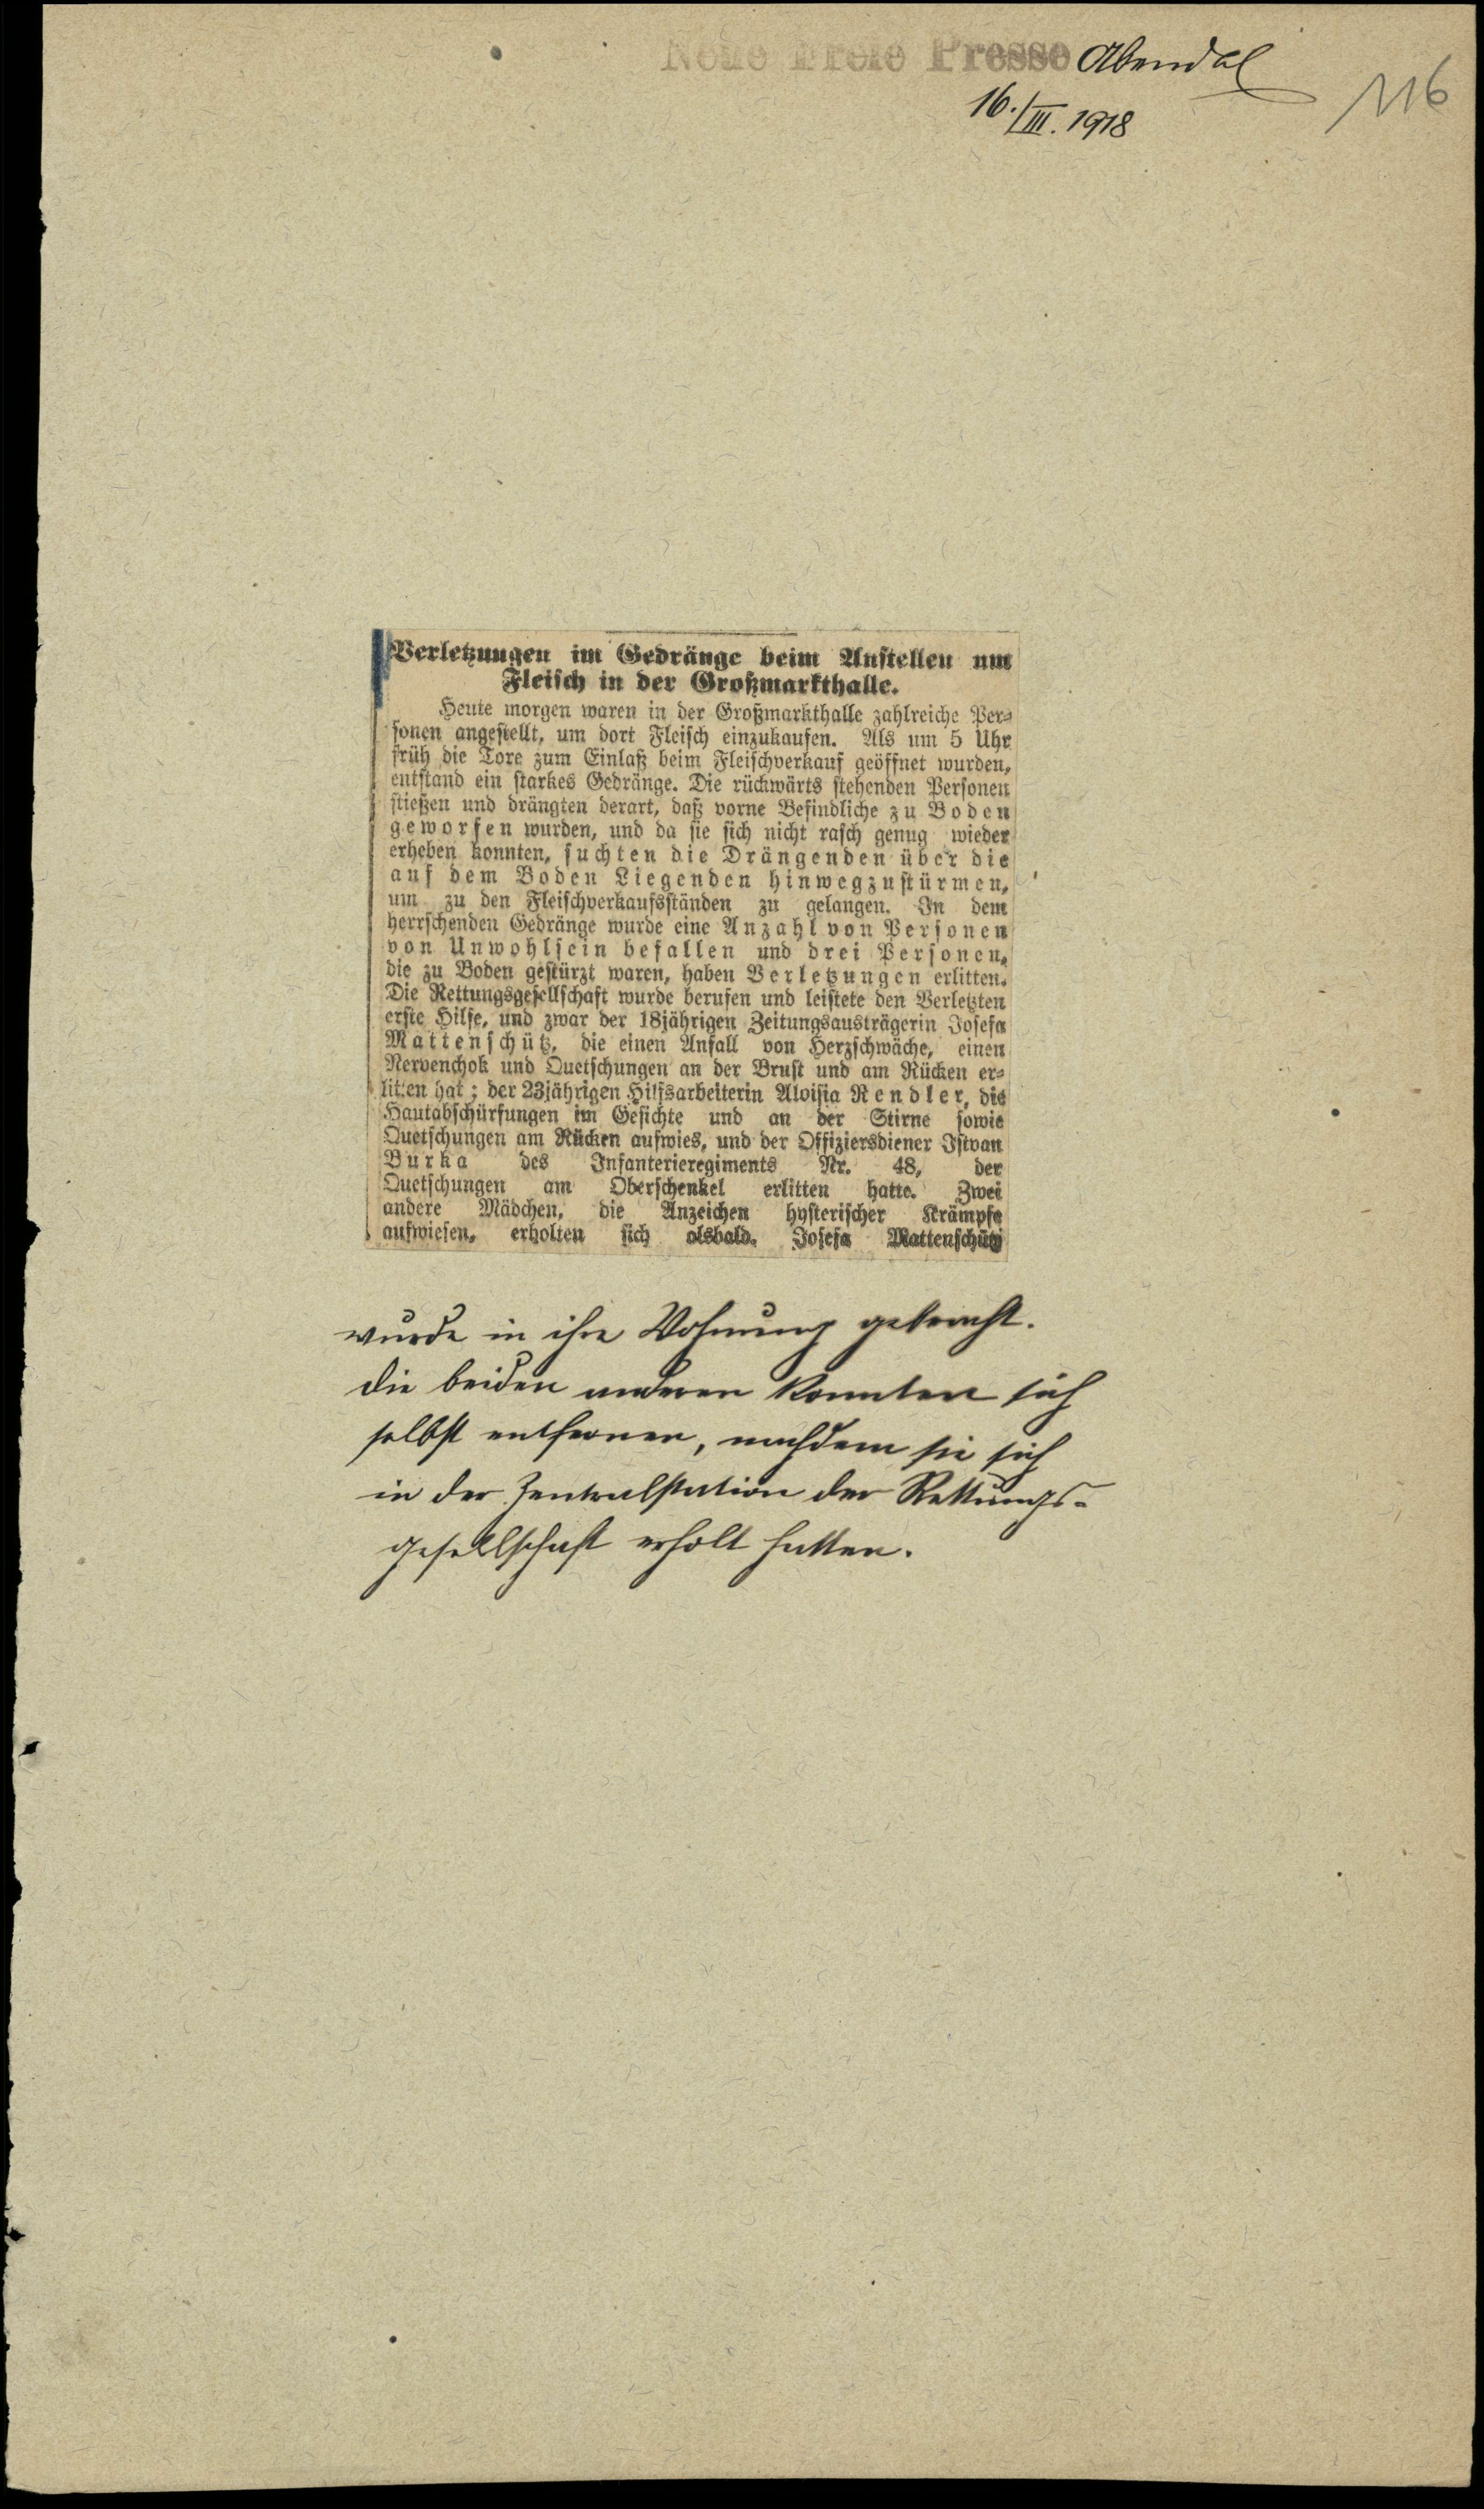 Neue Freie Presse Abendbl
16./III. 1918
116
Verletzungen im Gedränge beim Anstellen um
Fleisch in der Großmarkthalle.
Heute morgen waren in der Großmarkthalle zahlreiche Per-
sonen angestellt, um dort Fleisch einzukaufen. Als um 5 Uhr
früh die Tore zum Einlaß beim Fleischverkauf geöffnet wurden,
entstand ein starkes Gedränge. Die rückwärts stehenden Personen
stießen und drängten derart, daß vorne Befindliche zu Boden
geworfen wurden, und da sie sich nicht rasch genug wieder
erheben konnten, suchten die Drängenden über die
auf dem Boden Liegenden hinwegzustürmen,
um zu den Fleischverkaufsständen zu gelangen. In dem
herrschenden Gedränge wurde eine Anzahl von Personen
von Unwohlsein befallen und drei Personen,
die zu Boden gestürzt waren, haben Verletzungen erlitten.
Die Rettungsgesellschaft wurde berufen und leistete den Verletzten
erste Hilfe, und zwar der 18jährigen Zeitungsausträgerin Josefa
Mattenschütz, die einen Anfall von Herzschwäche, einen
Nervenchok und Quetschungen an der Brust und am Rücken er-
litten hat; der 23jährigen Hilfsarbeiterin Aloisia Rendler, die
Hautabschürfungen im Gesichte und an der Stirne sowie
Quetschungen am Rücken aufwies, und der Offiziersdiener Istvan
Burka des Infanterieregiments Nr. 48, der
Quetschungen am Oberschenkel erlitten hatte. Zwei
andere Mädchen, die Anzeichen hysterischer Krämpfe
aufwiesen, erholten sich alsbald. Josefa Mattenschütz
wurde in ihre Wohnung gebracht.
Die beiden anderen konnten sich
selbst entfernen, nachdem sie sich
in der Zentralstation der Rettungs-
gesellschaft erholt hatten.